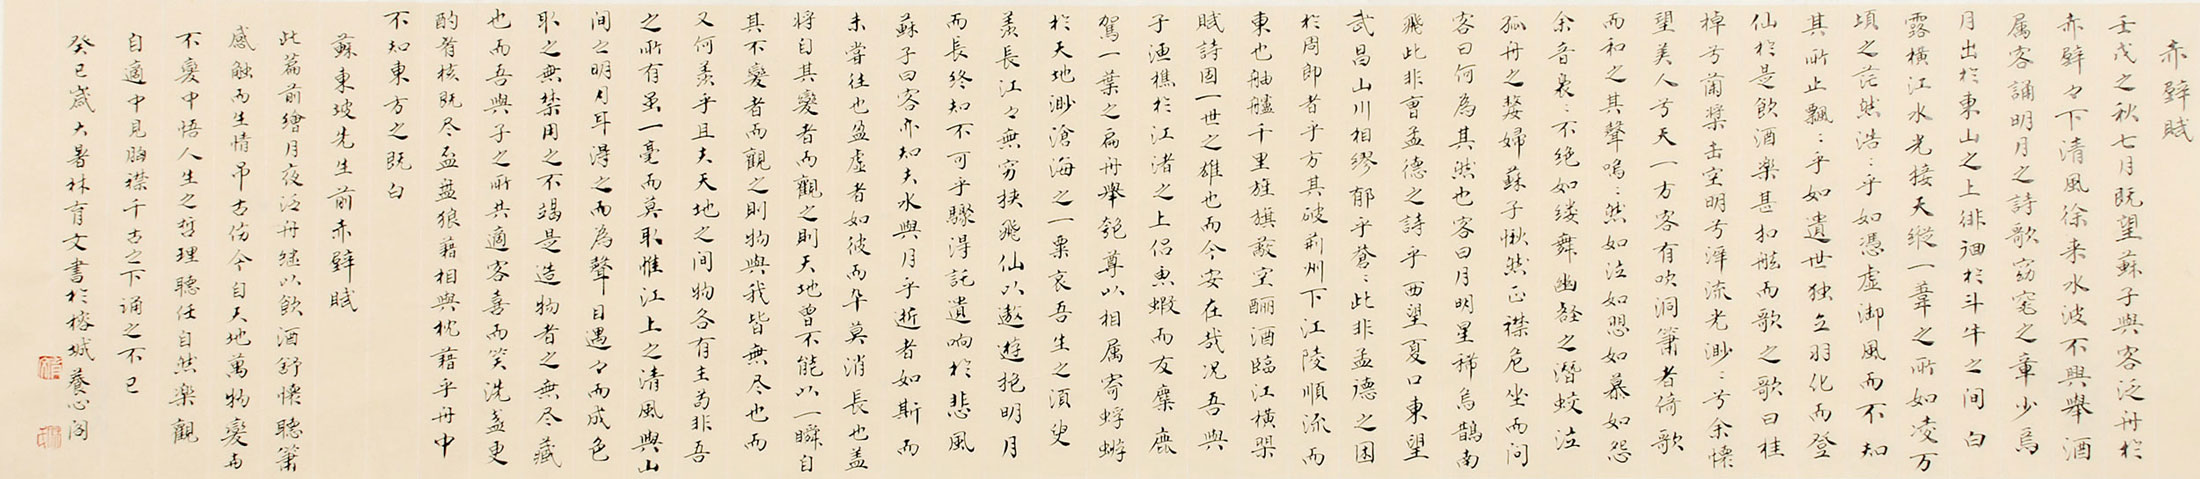 赤壁賦
壬戌之秋七月既望蘇子與客泛舟於
赤壁々下清風徐来水波不興舉酒
属客誦明月之詩歌窈窕之章少焉
月出於東山之上徘徊於斗牛之间白
露橫江水光接天縱一葦之所如凌万
頃之茫然浩:乎如憑虚御風而不知
其所止飄:乎如遺世独立羽化而登
仙於是飲酒楽甚扣舷而歌之歌曰桂
棹兮蘭槳击空明兮泝流光渺:兮余懐
望美人兮天一方客有吹洞簫者倚歌
而和之其聲嗚:然如泣如慕如怨
余音袅:不绝如缕舞幽壑之潛蛟泣
孤舟之嫠婦蘇子愀然正襟危坐而问
客曰何為其然也客曰月明星稀烏鵲南
飛此非曹孟德之詩乎西望夏口東望
武昌山川相缪郁乎蒼:此非孟德之困
於周郎者乎方其破荊州下江陵順流而
東也舳艫千里旌旗蔽空酾酒臨江橫槊
賦詩固一世之雄也而今安在哉况吾與
子渔樵於江渚之上侣魚蝦而友麋鹿
駕一葉之扁舟舉匏尊以相属寄蜉蝣
於天地渺滄海之一粟哀吾生之須臾
羨長江之無穷挟飛仙以遨遊抱明月
而長终知不可乎驟淂託遺响於悲風
蘇子曰客亦知夫水與月乎逝者如斯而
未嘗往也盈虚者如彼而卒莫消長也盖
将自其變者而觀之則天地曾不能以一瞬自
其不變者而觀之則物與我皆無尽也而
又何羨乎且夫天地之间物各有主苟非吾
之所有虽一毫而莫取惟江上之清風與山
间之明月耳淂之而為聲目遇々而成色
取之無禁用之不竭是造物者之無尽藏
也而吾與子之所共適客喜而笑洗盏更
酌肴核既尽盃盤狼藉相與枕藉乎舟中
不知東方之既白
蘇東坡先生前赤壁賦
此篇前繪月夜泛舟继以飲酒舒懐聽簫
感触而生情吊古伤今自天地萬物變与
不變中悟人生之哲理聽任自然楽觀
自適中見胸襟千古之下诵之不已
癸巳歲大暑林育文書於榕城養心阁